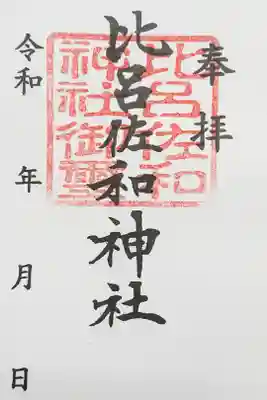 奉拝
比呂佐和神社
比呂佐和
神社御霊
令和 年 月 日